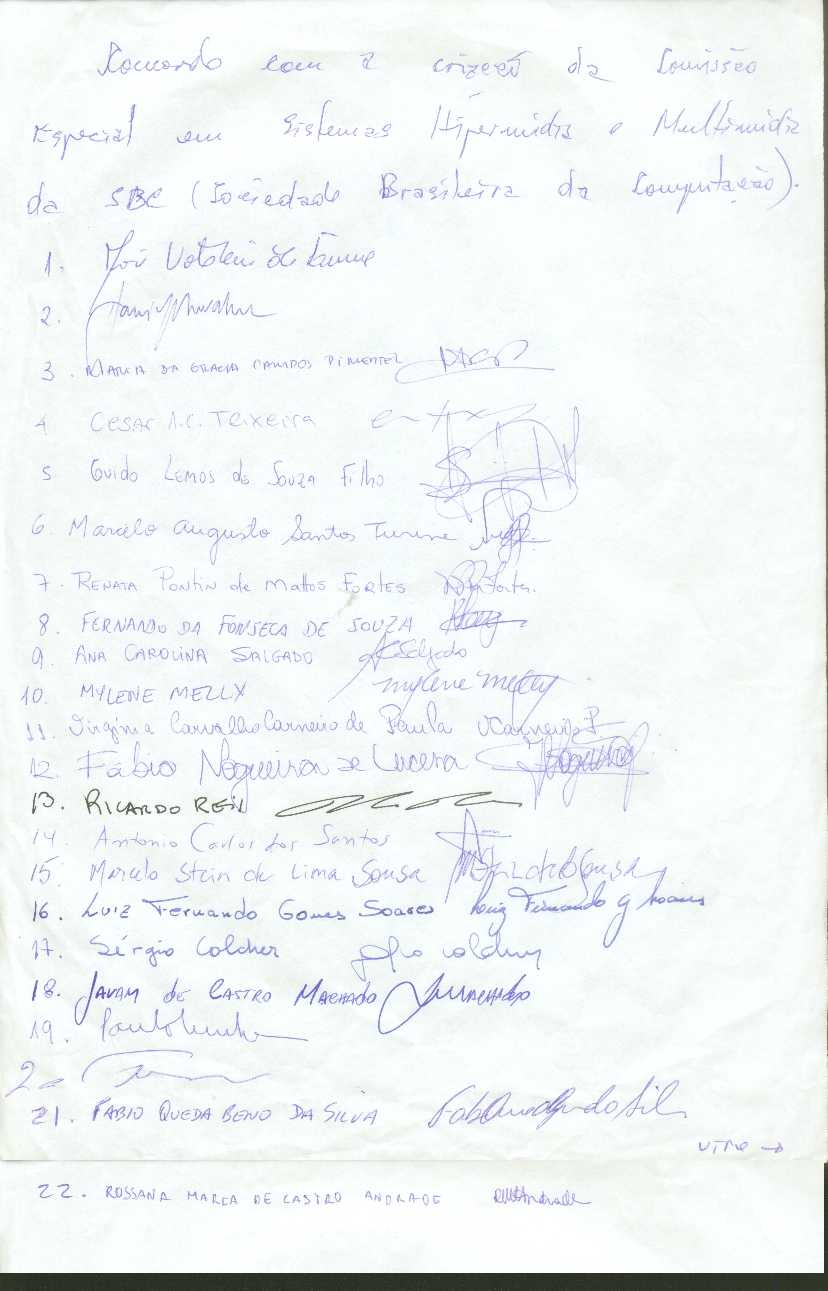 Concordo com a criação da Comissão
Especial em Sistemas Hipermídia e Multimídia
da SBC (Sociedade Brasileira da Computação).
1.
2.
3. MARIA DA GRACIA CAMPOS PIMENTEL
4 CESAR A.C. TEIXEIRA
5 Guido Lemos de Souza Filho
6. Marcelo Augusto Santos Turine
7. RENATA PONTIN de Mattos FORTES
8. FERNANDO DA FONSECA DE SOUZA
9. ANA CAROLINA SALGADO ACSalgado
10. MYLENE MELLY mylene melly
11. Virgínia Carvalho Carneiro de Paula VCarneiroP
12. Fábio Nogueira de Lucena
13. RICARDO REIS
14. Antonio Carlos dos Santos
15. Marcelo Stein de Lima Sousa
16. LUIZ Fernando Gomes Soares Luiz Fernando G Soares
17. Sérgio Colcher Sergio Colcher
18. JAVAM DE CASTRO MACHADO JMachado
19.
20
21. FABIO QUEDA BUENO DA SILVA
VIRE →
22. ROSSANA MARIA DE CASTRO ANDRADE RMCAndrade